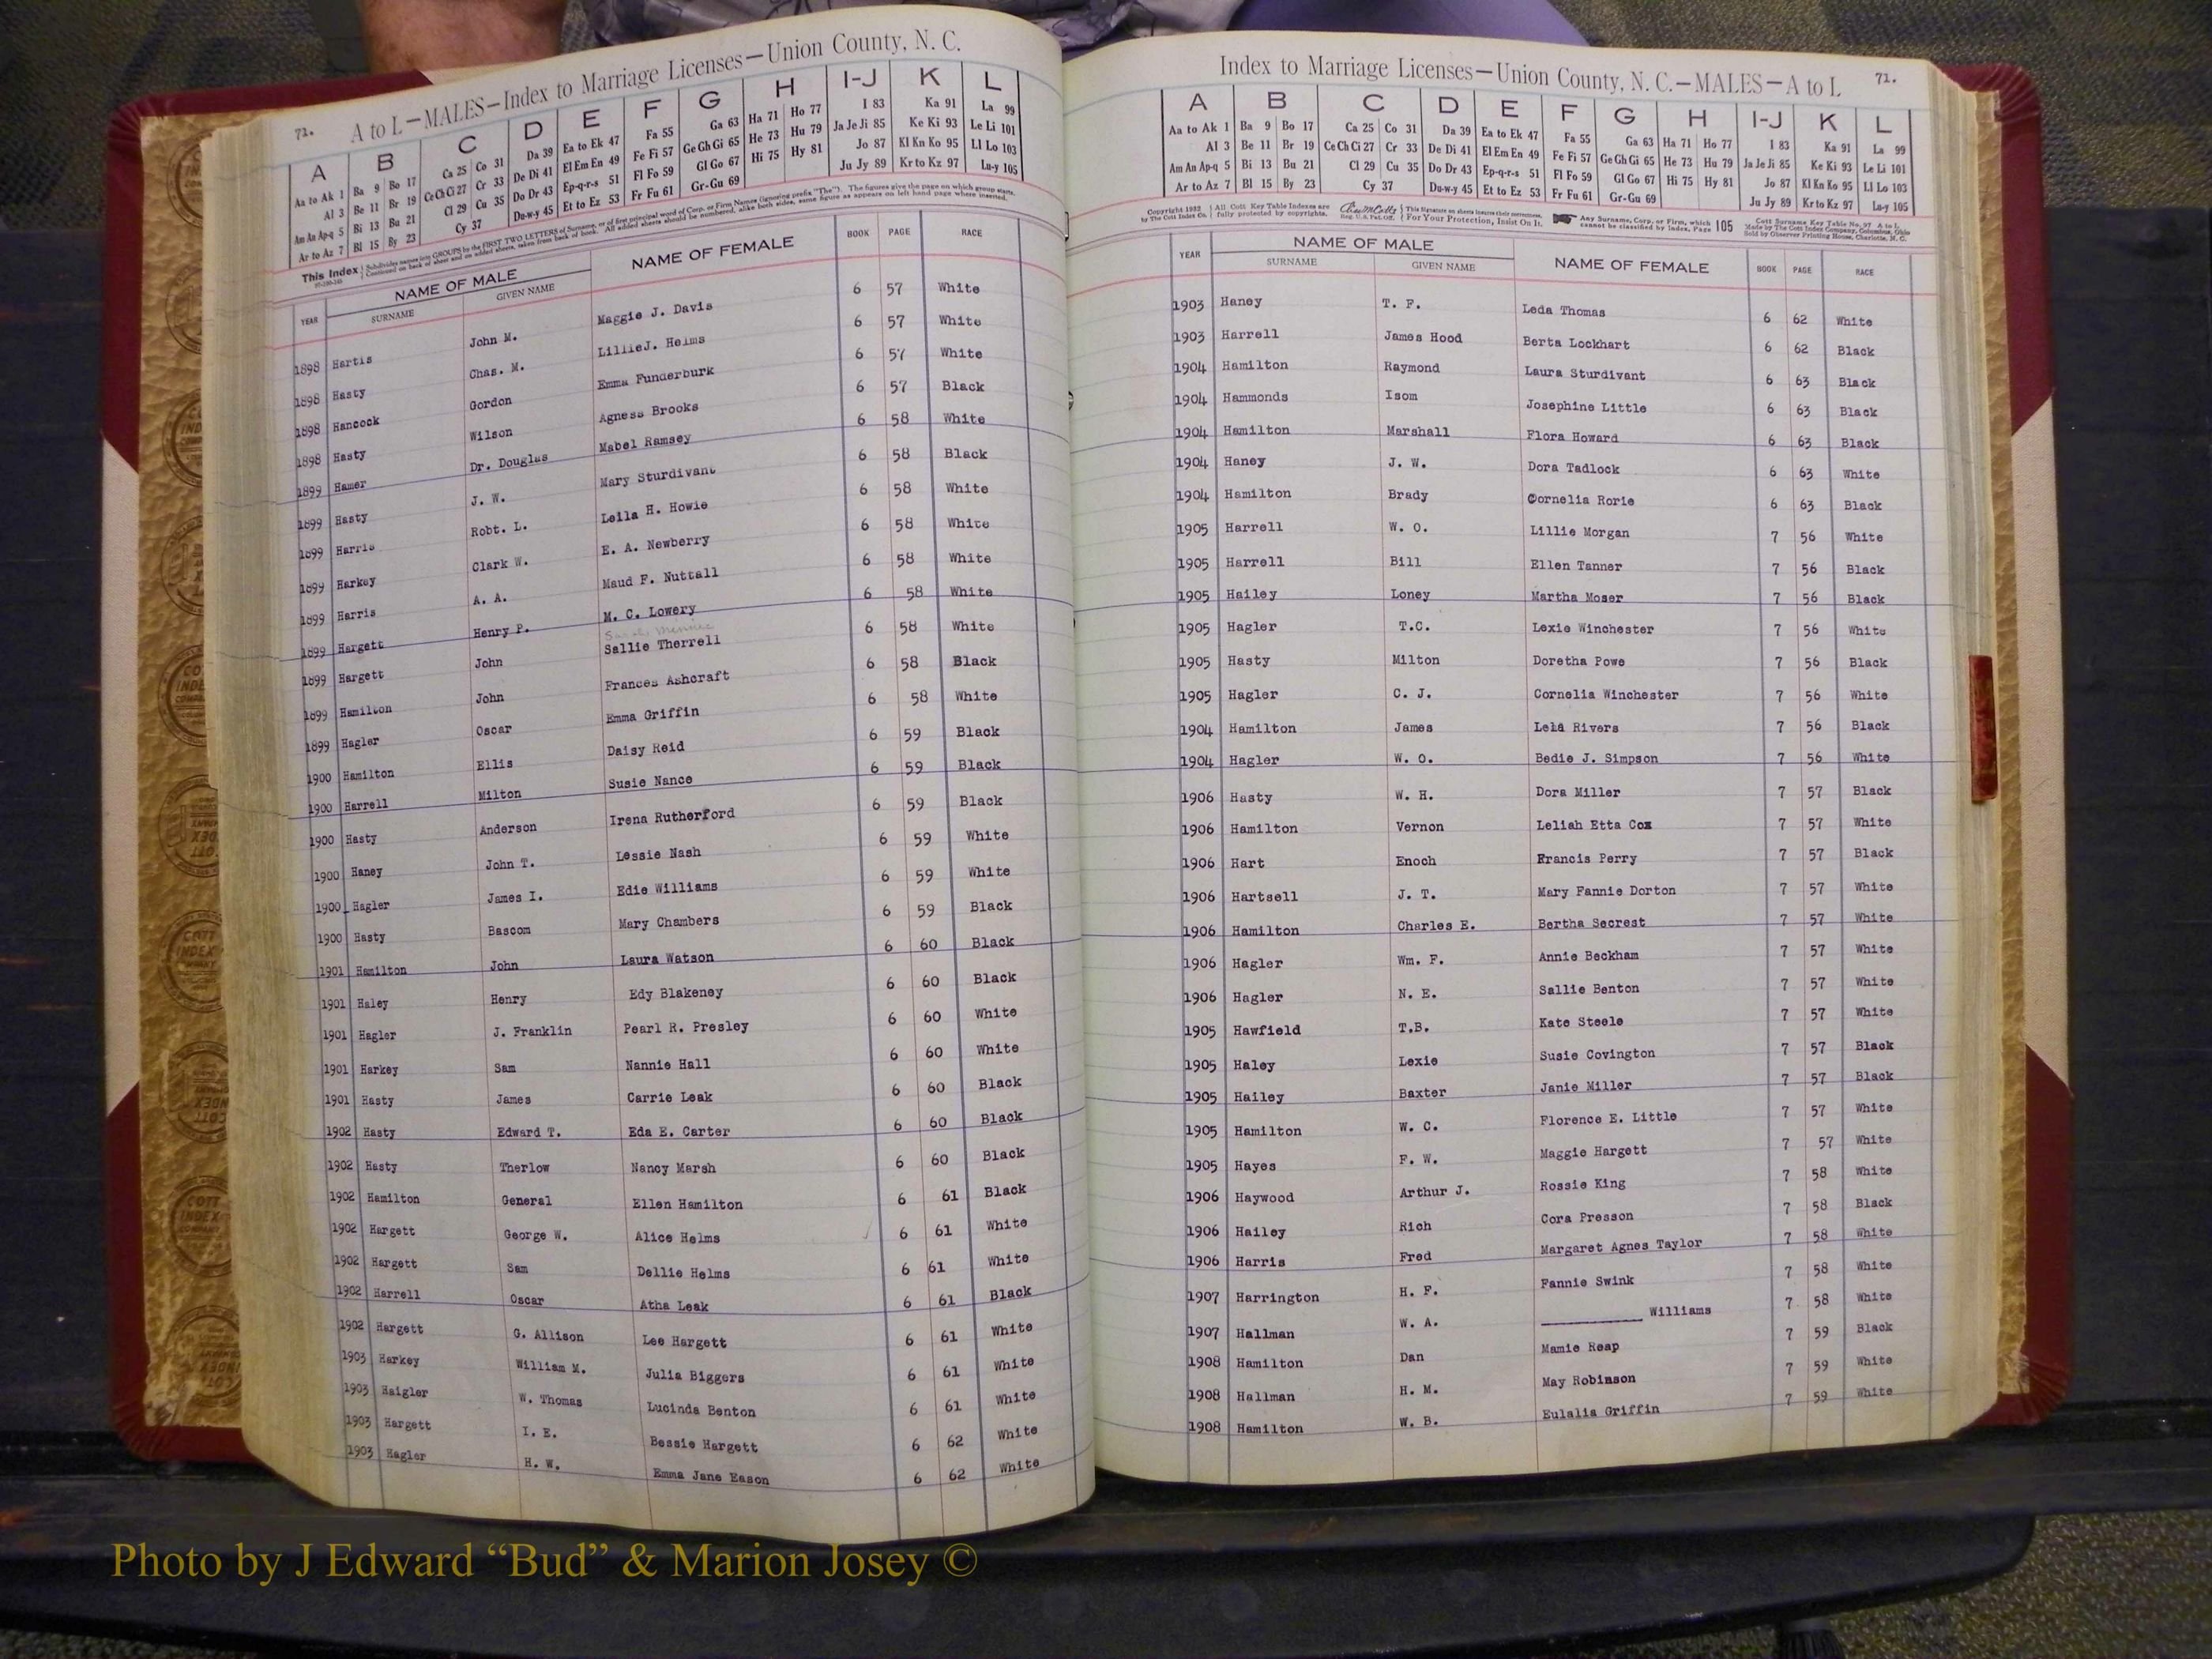 71. A to L—MALES—Index to Marriage Licenses—Union County, N. C.
A B C D E F G H I-J K L
Aa to Ak 1 Ba 9 Bo 17 Ca 25 Co 31 Da 39 Ea to Ek 47 Fa 55 Ga 63 Ha 71 Ho 77 I 83 Ka 91 La 99
Al 3 Be 11 Br 19 Ce Ch Ci 27 Cr 33 De Di 41 El Em En 49 Fe Fi 57 Ge Gh Gi 65 He 73 Hu 79 Ja Je Ji 85 Ke Ki 93 Le Li 101
Am An Ap-q 5 Bi 13 Bu 21 Cl 29 Cu 35 Do Dr 43 Ep-q-r-s 51 Fl Fo 59 Gl Go 67 Hi 75 Hy 81 Jo 87 Kl Kn Ko 95 Ll Lo 103
Ar to Az 7 Bl 15 By 23 Cy 37 Du-w-y 45 Et to Ez 53 Fr Fu 61 Gr-Gu 69 Ju Jy 89 Kr to Kz 97 Lu-y 105
This Index Subdivides names into GROUPS by the FIRST TWO LETTERS of Surname, or of first principal word of Corp. or Firm Names (ignoring prefix "The"). The figures give the page on which group starts.
Continued on back of sheet and on added sheets, taken from back of book. All added sheets should be numbered, alike both sides, same figure as appears on left hand page where inserted.
YEAR NAME OF MALE NAME OF FEMALE BOOK PAGE RACE
SURNAME GIVEN NAME
1898 Hartis John M. Maggie J. Davis 6 57 White
1898 Hasty Chas. M. Lillie J. Helms 6 57 White
1898 Hancock Gordon Emma Funderburk 6 57 White
1898 Hasty Wilson Agness Brooks 6 57 Black
1899 Hamer Dr. Douglas Mabel Ramsey 6 58 White
1899 Hasty J. W. Mary Sturdivant 6 58 Black
1899 Harris Robt. L. Leila H. Howie 6 58 White
1899 Harkey Clark W. E. A. Newberry 6 58 White
1899 Harris A. A. Maud F. Nuttall 6 58 White
1899 Hargett Henry P. M. C. Lowery 6 58 White
1899 Hargett John Sallie Therrell 6 58 White
1899 Hamilton John Frances Ashcraft 6 58 Black
1899 Hagler Oscar Emma Griffin 6 58 White
1900 Hamilton Ellis Daisy Reid 6 59 Black
1900 Harrell Milton Susie Nance 6 59 Black
1900 Hasty Anderson Irena Rutherford 6 59 Black
1900 Haney John T. Lessie Nash 6 59 White
1900 Hagler James I. Edie Williams 6 59 White
1900 Hasty Bascom Mary Chambers 6 59 Black
1901 Hamilton John Laura Watson 6 60 Black
1901 Haley Henry Edy Blakeney 6 60 Black
1901 Hagler J. Franklin Pearl R. Presley 6 60 White
1901 Harkey Sam Nannie Hall 6 60 White
1901 Hasty James Carrie Leak 6 60 Black
1902 Hasty Edward T. Eda E. Carter 6 60 Black
1902 Hasty Therlow Nancy Marsh 6 60 Black
1902 Hamilton General Ellen Hamilton 6 61 Black
1902 Hargett George W. Alice Helms 6 61 White
1902 Hargett Sam Dellie Helms 6 61 White
1902 Harrell Oscar Atha Leak 6 61 Black
1902 Hargett G. Allison Lee Hargett 6 61 White
1903 Harkey William M. Julia Biggers 6 61 White
1903 Haigler W. Thomas Lucinda Benton 6 61 White
1903 Hargett I. E. Bessie Hargett 6 62 White
1903 Hagler H. W. Emma Jane Eason 6 62 White
Index to Marriage Licenses—Union County, N. C.—MALES—A to L 71.
A B C D E F G H I-J K L
Aa to Ak 1 Ba 9 Bo 17 Ca 25 Co 31 Da 39 Ea to Ek 47 Fa 55 Ga 63 Ha 71 Ho 77 I 83 Ka 91 La 99
Al 3 Be 11 Br 19 Ce Ch Ci 27 Cr 33 De Di 41 El Em En 49 Fe Fi 57 Ge Gh Gi 65 He 73 Hu 79 Ja Je Ji 85 Ke Ki 93 Le Li 101
Am An Ap-q 5 Bi 13 Bu 21 Cl 29 Cu 35 Do Dr 43 Ep-q-r-s 51 Fl Fo 59 Gl Go 67 Hi 75 Hy 81 Jo 87 Kl Kn Ko 95 Ll Lo 103
Ar to Az 7 Bl 15 By 23 Cy 37 Du-w-y 45 Et to Ez 53 Fr Fu 61 Gr-Gu 69 Ju Jy 89 Kr to Kz 97 Lu-y 105
Copyright 1932 All Cott Key Table Indexes are This Signature on sheets insures their correctness. Any Surname, Corp. or Firm, which Cott Surname Key Table No. 97 A to L
by The Cott Index Co. fully protected by copyrights. Reg. U.S. Pat. Off. For Your Protection, Insist On It. cannot be classified by Index, Page 105 Made by The Cott Index Company, Columbus, Ohio
Sold by Observer Printing House, Charlotte, N. C.
YEAR NAME OF MALE NAME OF FEMALE BOOK PAGE RACE
SURNAME GIVEN NAME
1903 Haney T. F. Leda Thomas 6 62 White
1903 Harrell James Hood Berta Lockhart 6 62 Black
1904 Hamilton Raymond Laura Sturdivant 6 63 Black
1904 Hammonds Isom Josephine Little 6 63 Black
1904 Hamilton Marshall Flora Howard 6 63 Black
1904 Haney J. W. Dora Tadlock 6 63 White
1904 Hamilton Brady Cornelia Rorie 6 63 Black
1905 Harrell W. O. Lillie Morgan 7 56 White
1905 Harrell Bill Ellen Tanner 7 56 Black
1905 Hailey Loney Martha Moser 7 56 Black
1905 Hagler T.C. Lexie Winchester 7 56 White
1905 Hasty Milton Doretha Powe 7 56 Black
1905 Hagler C. J. Cornelia Winchester 7 56 White
1904 Hamilton James Lela Rivers 7 56 Black
1904 Hagler W. O. Bedie J. Simpson 7 56 White
1906 Hasty W. H. Dora Miller 7 57 Black
1906 Hamilton Vernon Leliah Etta Cox 7 57 White
1906 Hart Enoch Francis Perry 7 57 Black
1906 Hartsell J. T. Mary Fannie Dorton 7 57 White
1906 Hamilton Charles E. Bertha Secrest 7 57 White
1906 Hagler Wm. F. Annie Beckham 7 57 White
1906 Hagler N. E. Sallie Benton 7 57 White
1905 Hawfield T.B. Kate Steele 7 57 White
1905 Haley Lexie Susie Covington 7 57 Black
1905 Hailey Baxter Janie Miller 7 57 Black
1905 Hamilton W. C. Florence E. Little 7 57 White
1905 Hayes F. W. Maggie Hargett 7 57 White
1906 Haywood Arthur J. Rossie King 7 58 White
1906 Hailey Rich Cora Presson 7 58 Black
1906 Harris Fred Margaret Agnes Taylor 7 58 White
1907 Harrington H. F. Fannie Swink 7 58 White
1907 Hallman W. A. ________ Williams 7 58 White
1908 Hamilton Dan Mamie Reap 7 59 Black
1908 Hallman H. M. May Robinson 7 59 White
1908 Hamilton W. B. Eulalia Griffin 7 59 White
Photo by J Edward “Bud” & Marion Josey ©